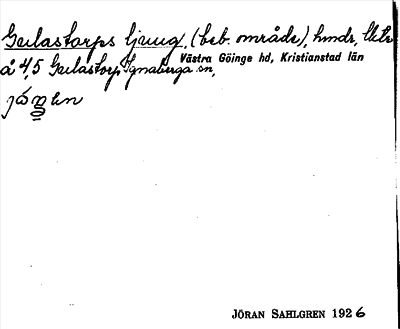 Gulastorps ljung, (beb. område), hmds,
å 4,5 Gulastorp, Ignaberga sn,
Västra Göinge hd, Kristianstad län
JÖRAN SAHLGREN 1926